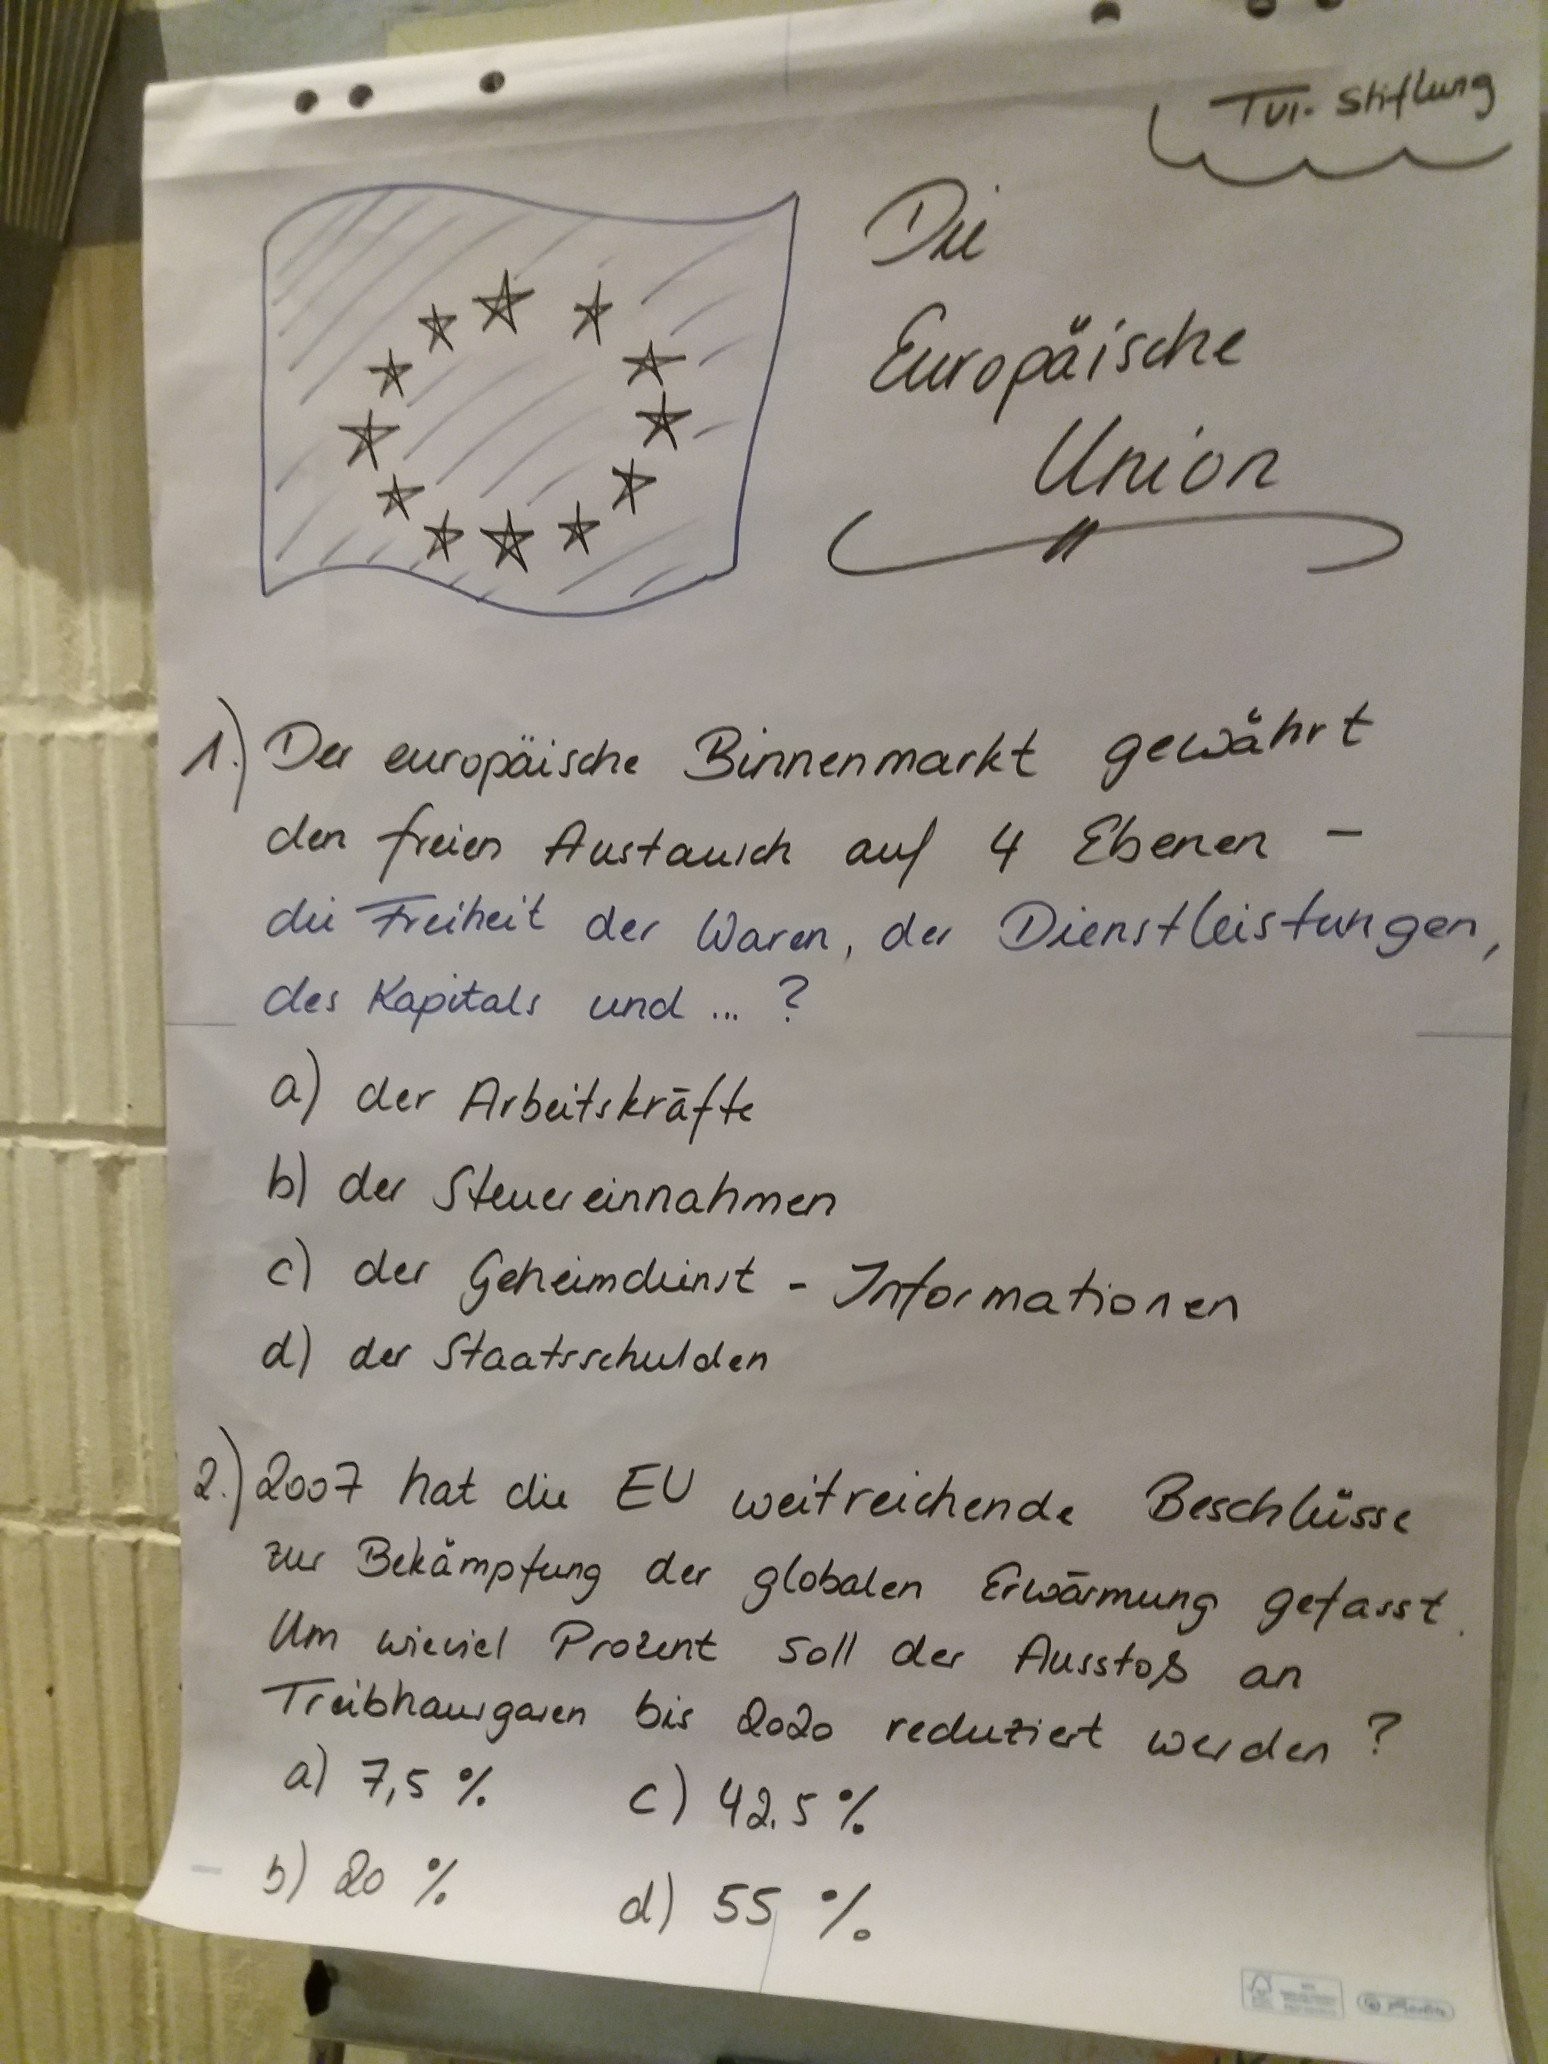 TUI-Stiftung
Die
Europäische
Union
1.) Der europäische Binnenmarkt gewährt
den freien Austausch auf 4 Ebenen –
die Freiheit der Waren, der Dienstleistungen,
des Kapitals und ... ?
a) der Arbeitskräfte
b) der Steuereinnahmen
c) der Geheimdienst - Informationen
d) der Staatsschulden
2.) 2007 hat die EU weitreichende Beschlüsse
zur Bekämpfung der globalen Erwärmung gefasst.
Um wieviel Prozent soll der Ausstoß an
Treibhausgasen bis 2020 reduziert werden ?
a) 7,5 % c) 42,5 %
b) 20 % d) 55 %